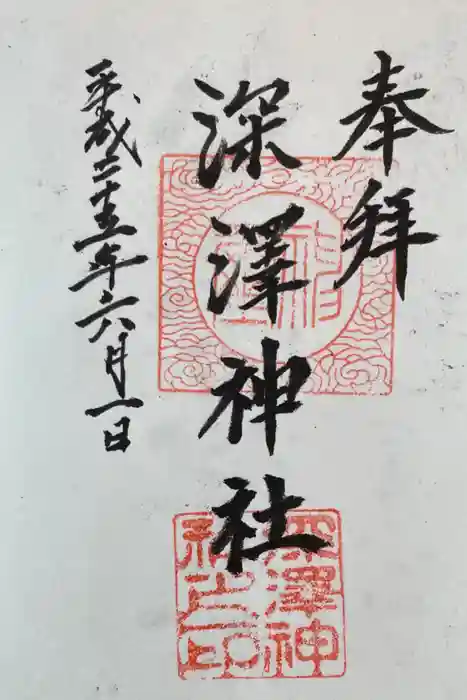 奉拝
深澤神社
平成二十五年六月一日
深澤神
社之印